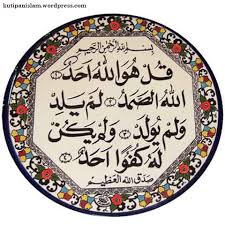 kutipanislam.wordpress.com
بِسْمِ اللهِ الرَّحْمٰنِ الرَّحِيْمِ
قُلْ هُوَ اللهُ اَحَدٌ ﴿١﴾
اَللهُ الصَّمَدُ ﴿٢﴾ لَمْ يَلِدْ
وَلَمْ يُوْلَدْ ﴿٣﴾ وَلَمْ يَكُنْ
لَّهُ كُفُوًا اَحَدٌ ﴿٤﴾
صَدَقَ اللهُ الْعَظِيْمِ